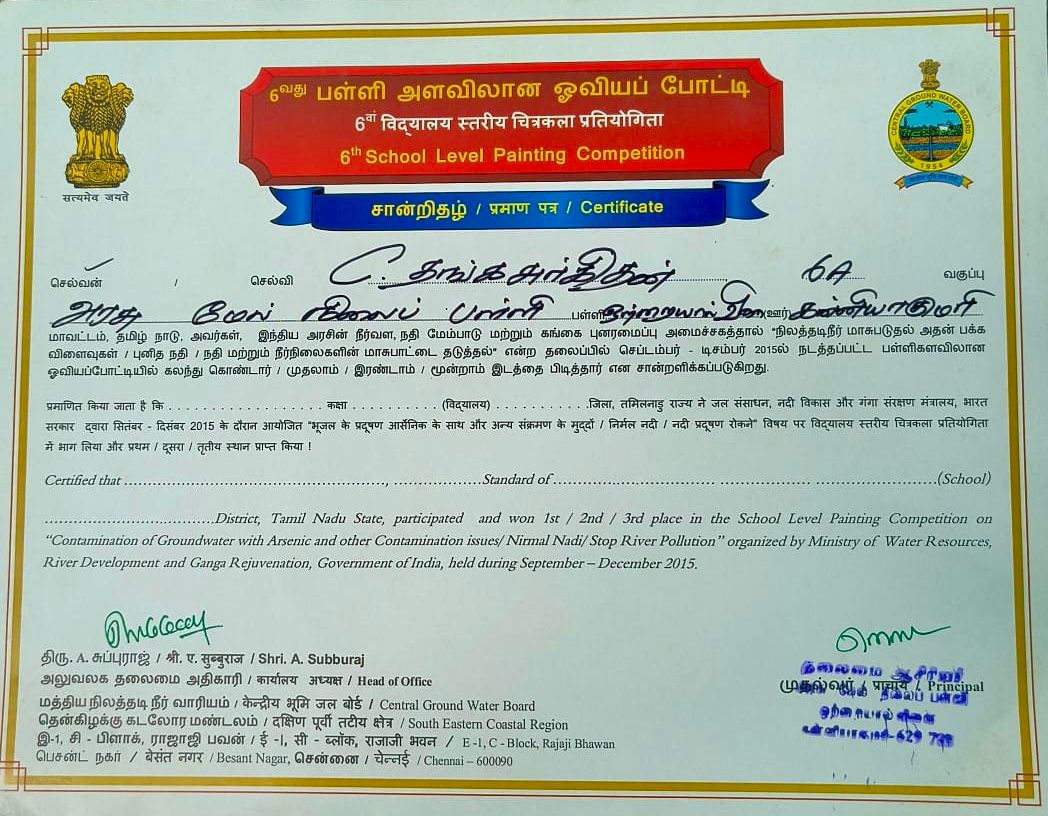 6வது பள்ளி அளவிலான ஓவியப் போட்டி
6वां विद्यालय स्तरीय चित्रकला प्रतियोगिता
6th School Level Painting Competition
सत्यमेव जयते
CENTRAL GROUND WATER BOARD
1954
சான்றிதழ் / प्रमाण पत्र / Certificate
செல்வன் / செல்வி C. தங்க 6A வகுப்பு
அரசு மேல் நிலைப் பள்ளி பள்ளி ஒற்றையால் விளை (ஊர்) கன்னியாகுமரி
மாவட்டம், தமிழ் நாடு. அவர்கள், இந்திய அரசின் நீர்வள, நதி மேம்பாடு மற்றும் கங்கை புனரமைப்பு அமைச்சகத்தால் "நிலத்தடிநீர் மாசுபடுதல் அதன் பக்க
விளைவுகள் / புனித நதி / நதி மற்றும் நீர்நிலைகளின் மாசுபாட்டை தடுத்தல்" என்ற தலைப்பில் செப்டம்பர் - டிசம்பர் 2015ல் நடத்தப்பட்ட பள்ளிகளவிலான
ஓவியப்போட்டியில் கலந்து கொண்டார் / முதலாம் / இரண்டாம் / மூன்றாம் இடத்தை பிடித்தார் என சான்றளிக்கப்படுகிறது.
प्रमाणित किया जाता है कि . . . . . . . . . . . . . . . . . . . . कक्षा . . . . . . . . . . (विद्यालय) . . . . . . . . . . .जिला, तमिलनाडु राज्य ने जल संसाधन, नदी विकास और गंगा संरक्षण मंत्रालय, भारत
सरकार द्वारा सितंबर - दिसंबर 2015 के दौरान आयोजित "भूजल के प्रदूषण आर्सेनिक के साथ और अन्य संक्रमण के मुद्दों / निर्मल नदी / नदी प्रदूषण रोकने" विषय पर विद्यालय स्तरीय चित्रकला प्रतियोगिता
में भाग लिया और प्रथम / दूसरा / तृतीय स्थान प्राप्त किया !
Certified that ......................................................, ..................Standard of................................. .................... ............................(School)
...................................District, Tamil Nadu State, participated and won 1st / 2nd / 3rd place in the School Level Painting Competition on
"Contamination of Groundwater with Arsenic and other Contamination issues/ Nirmal Nadi/ Stop River Pollution" organized by Ministry of Water Resources,
River Development and Ganga Rejuvenation, Government of India, held during September – December 2015.
திரு. A. சுப்புராஜ் / श्री. ए. सुब्बुराज / Shri. A. Subburaj
அலுவலக தலைமை அதிகாரி / कार्यालय अध्यक्ष / Head of Office
மத்திய நிலத்தடி நீர் வாரியம் / केन्द्रीय भूमि जल बोर्ड / Central Ground Water Board
தென்கிழக்கு கடலோர மண்டலம் / दक्षिण पूर्वी तटीय क्षेत्र / South Eastern Coastal Region
இ-1, சி - பிளாக், ராஜாஜி பவன் / ई -I, सी - ब्लॉक, राजाजी भवन / E -1, C - Block, Rajaji Bhawan
பெசன்ட் நகர் / बेसंत नगर / Besant Nagar, சென்னை / चेन्नई / Chennai – 600090
தலைமை ஆசிரியர்
முதல்வர் / प्राचार्य / Principal
மேல் நிலைப் பள்ளி
ஒற்றையால் விளை